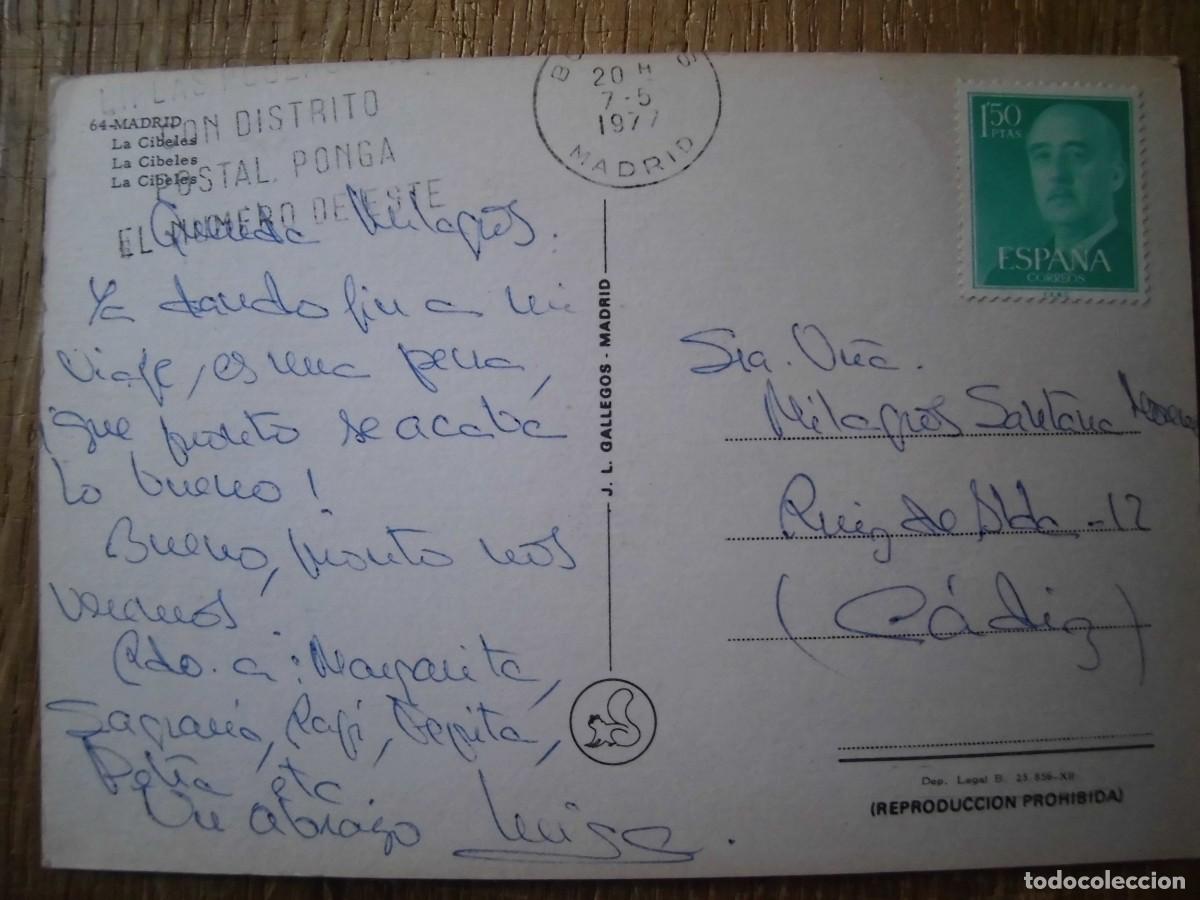 64-MADRID
La Cibeles
La Cibeles
La Cibeles
CON DISTRITO
POSTAL, PONGA
EL NUMERO DE ESTE
20 H
7-5
1977
MADRID
1'50
PTAS
ESPAÑA
CORREOS
Querida Milagros.
Ya dando fin a mi
viaje, es una pena,
¡que pronto se acaba
lo bueno!
Bueno, pronto nos
vemos.
Rdo. a: Margarita,
Sagrario, Rafi, Pepita,
etc.
Un abrazo Luisa.
J. L. GALLEGOS - MADRID
Sra. Dña.
Milagros Santana
Ruiz de Alda - 12
(Cádiz)
Dep. Legal B. 25.856-XII
(REPRODUCCION PROHIBIDA)
todocoleccion